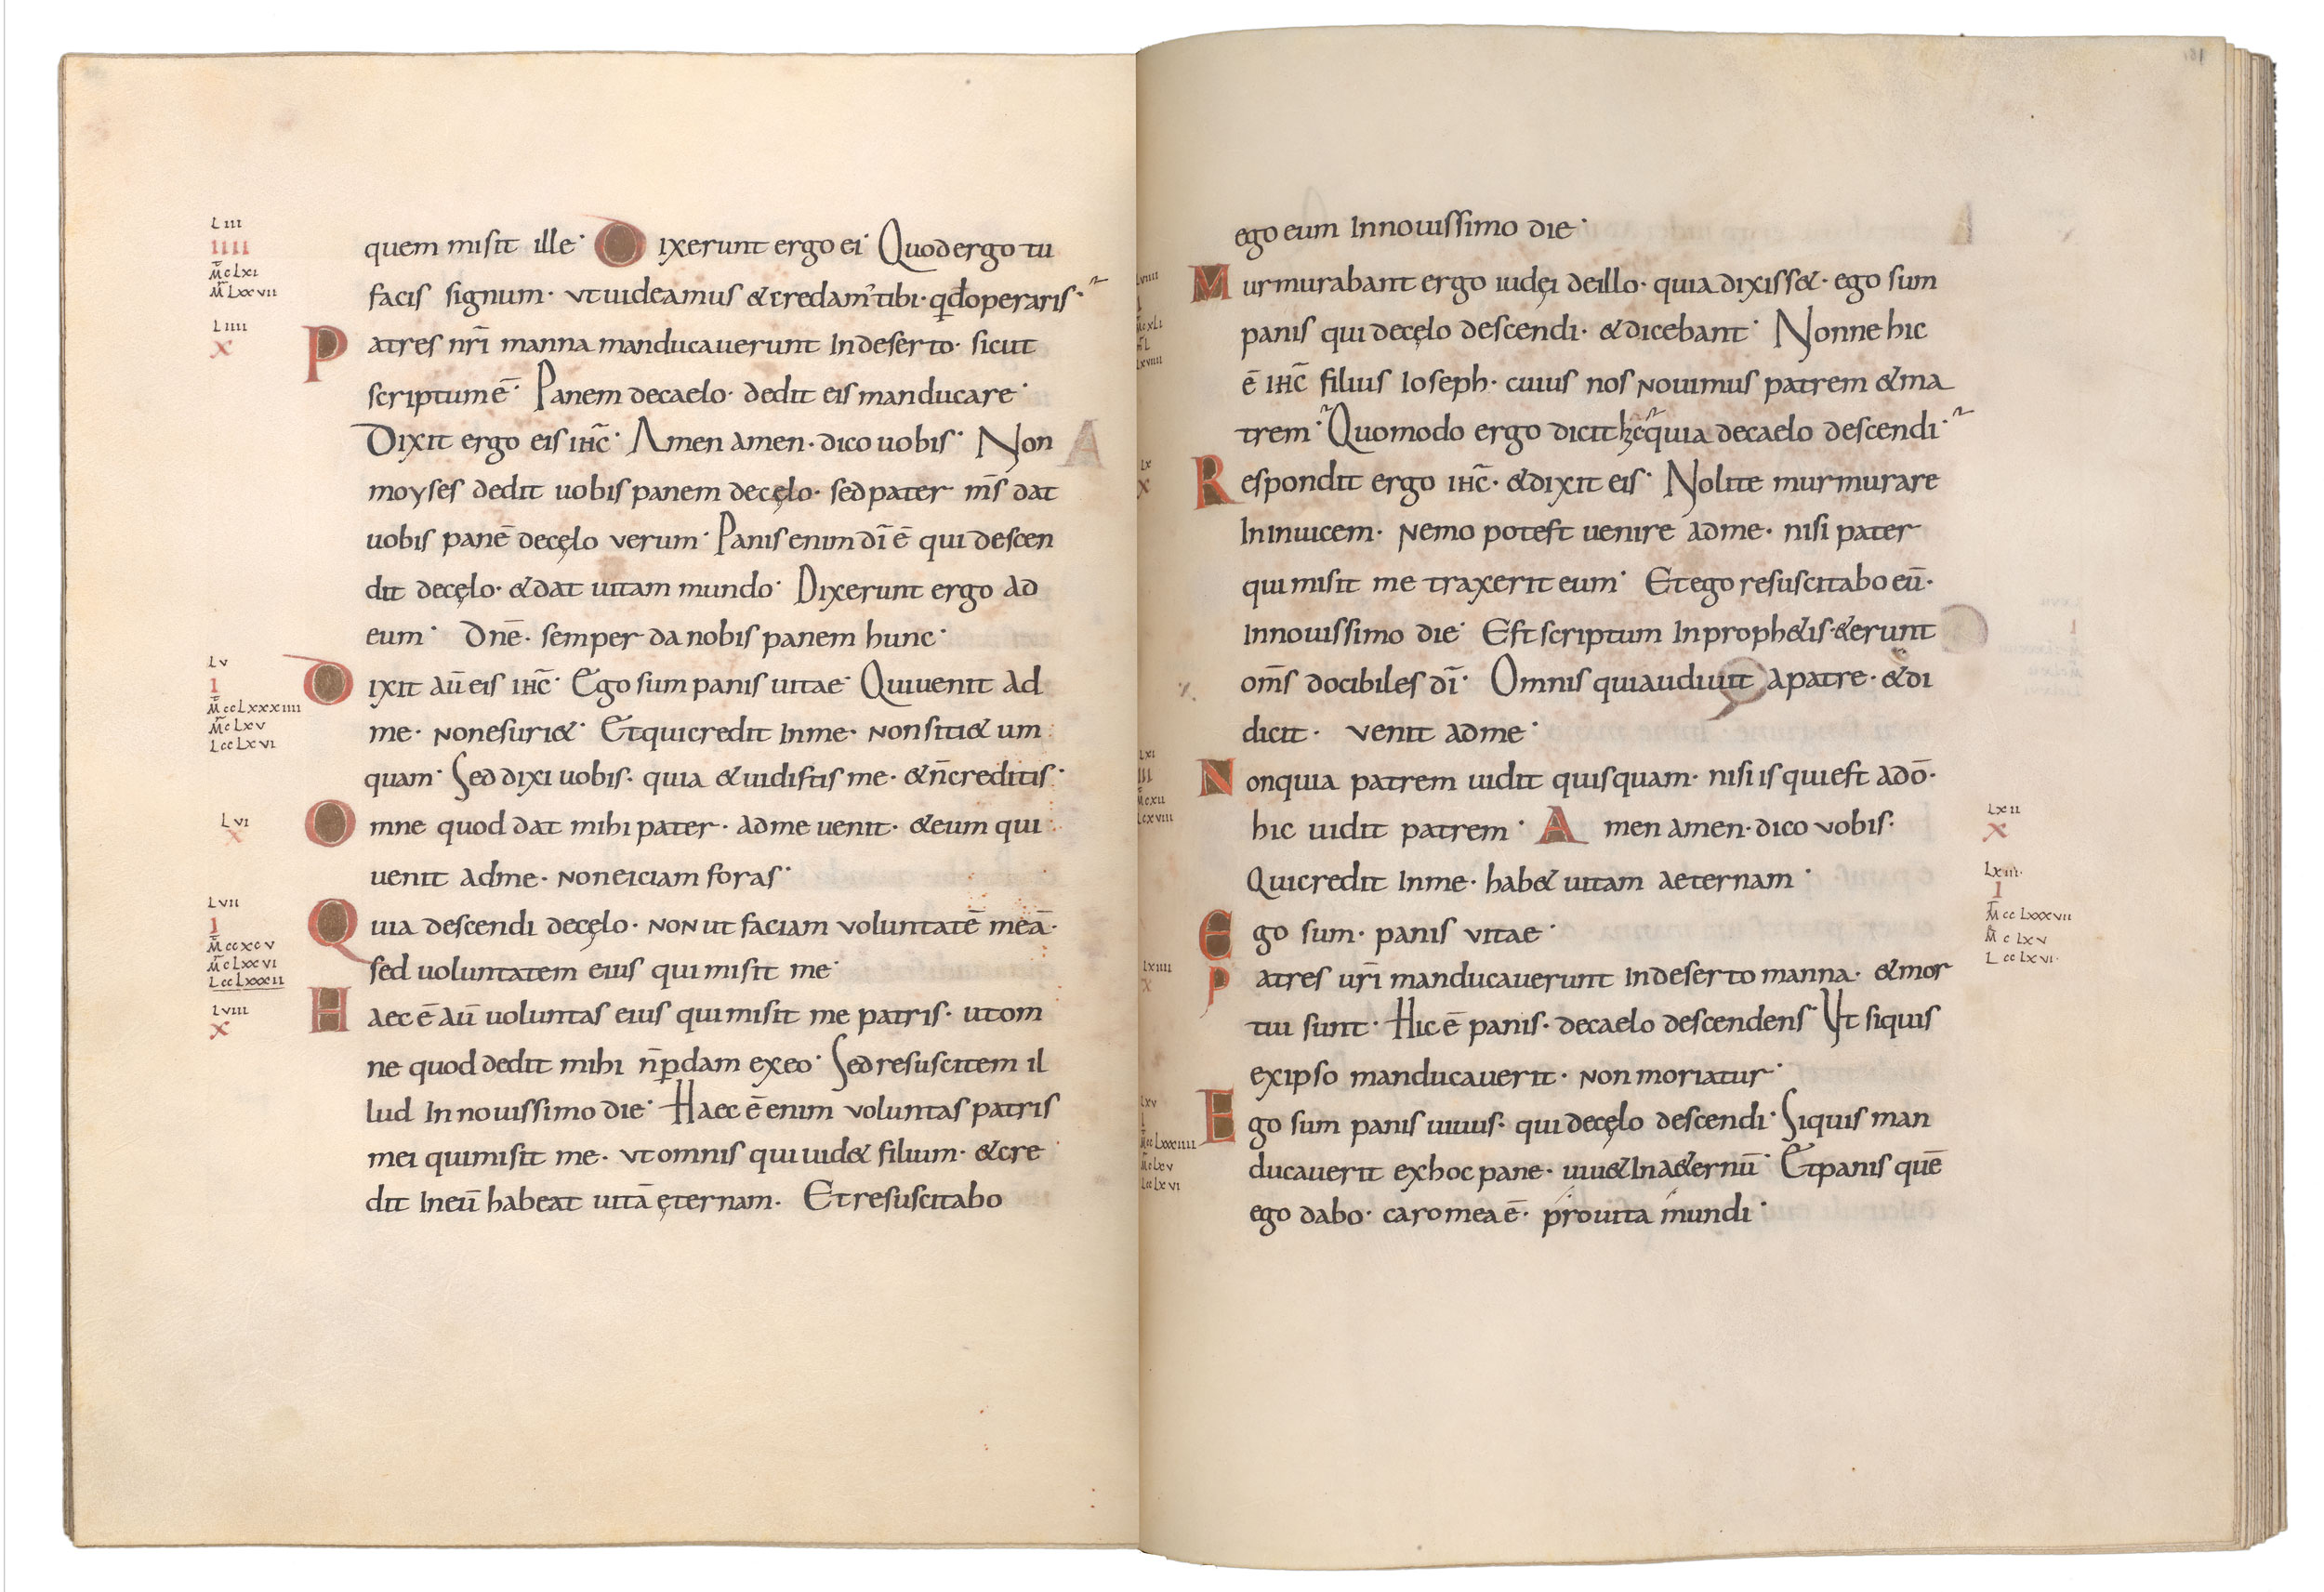 LIII
IIII
M̄ cLxi
M̄ Lxxvii
quem misit ille· Dixerunt ergo ei· Quod ergo tu
facis signum· ut uideamus & credam' tibi· qd operaris·
LIIII
X
Patres nr̄i manna manducauerunt In deserto· sicut
scriptum ē· Panem de caelo· dedit eis manducare·
Dixit ergo eis ihc̄· Amen amen· dico uobis· Non
moyses dedit uobis panem de cęlo· sed pater m̄s dat
uobis panē de cęlo verum· Panis enim dī ē qui descen
dit de cęlo· & dat uitam mundo· Dixerunt ergo ad
eum· Dn̄e· semper da nobis panem hunc·
LV
I
M̄ ccLxxxiiii
M̄ cLxv
LccLxvi
Dixit aū eis ihc̄· Ego sum panis uitae· Qui uenit ad
me· non esuri&· Et qui credit In me· non siti& um
quam· Sed dixi uobis· quia & uidistis me· & n̄ creditis·
LVI
X
Omne quod dat mihi pater· ad me uenit· & eum qui
uenit ad me· non eiciam foras·
LVII
I
M̄ ccxcv
M̄ cLxxvi
LccLxxxii
Quia descendi de cęlo· non ut faciam voluntatē meā·
sed uoluntatem eius qui misit me·
LVIII
X
Haec ē aū uoluntas eius qui misit me patris· ut om
ne quod dedit mihi n̄ p̱dam ex eo· Sed resuscitem il
lud In nouissimo die· Haec ē enim voluntas patris
mei qui misit me· ut omnis qui uid& filium· & cre
dit In eū habeat uitā ęternam· Et resuscitabo
ego eum In nouissimo die·
Murmurabant ergo iudęi de illo· quia dixiss&· ego sum
panis qui de cęlo descendi· & dicebant· Nonne hic
ē ihc̄ filius Ioseph· cuius nos nouimus patrem & ma
trem· Quomodo ergo dicit hc quia de caelo descendi·
LX
X
Respondit ergo ihc̄· & dixit eis· Nolite murmurare
In inuicem· nemo potest uenire ad me· nisi pater
qui misit me traxerit eum· Et ego resuscitabo eū·
In nouissimo die· Est scriptum In proph&is· & erunt
om̄s docibiles dī· Omnis qui audiuit a patre· & di
dicit· venit ad me·
LXI
III
Non quia patrem uidit quisquam· nisi is qui est a dō·
LXII
X
hic uidit patrem· Amen amen· dico vobis·
Qui credit In me· hab& uitam aeternam·
LXIII
I
M̄ ccLxxxvii
M̄ cLxv
LccLxvi
Ego sum· panis vitae·
LXIIII
X
Patres ur̄i manducauerunt In deserto manna· & mor
tui sunt· Hic ē panis· de caelo descendens· Ut siquis
ex ipso manducauerit· non moriatur·
LXV
I
M̄ ccLxxxiiii
M̄ cLxv
LccLxvi
Ego sum panis uiuus· qui de cęlo descendi· Siquis man
ducauerit ex hoc pane· uiu& In a&ernū· Et panis quē
ego dabo· caro mea ē· pro uita mundi·